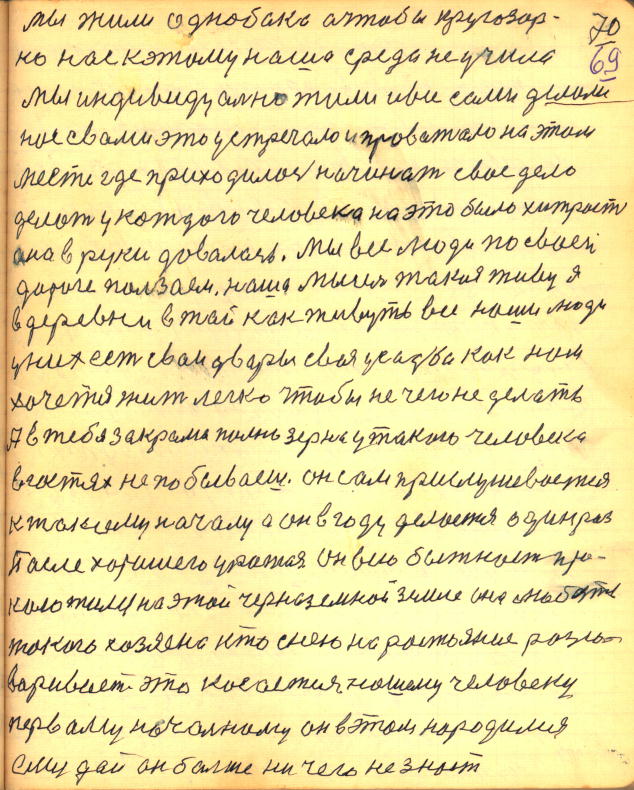 мы жили однобака ачтобы кругозор-
но нас кэтому наша среда не учила
70
69
мы индивидуално жили ивсе сами делали
нас свами это устречало ипроважало на этом
месте где приходилос начинат свое дело
делат у каждого человека на это было хитрост
она в руки довалась. Мы все люди по своей
дороге ползаем. наша мысля такая живу я
в деревни в тай как живуть все наши люди
у них ест сваи двары своя усадба как нам
хочется жит легко чтобы не чего не делать
А в тебя закрама полны зерна у такого человека
вгостях не побываеш. он сам прислушевается
к таксому началу а он в году делается один раз
После хорошего урожая Он всю бытност про-
жил на этой черназемной земле она любит
такого хозяена кто снею на ростояние разго-
варивает это косается нашему человеку
перваму началному он в этом народился
ему дай он балше ни чего не знает